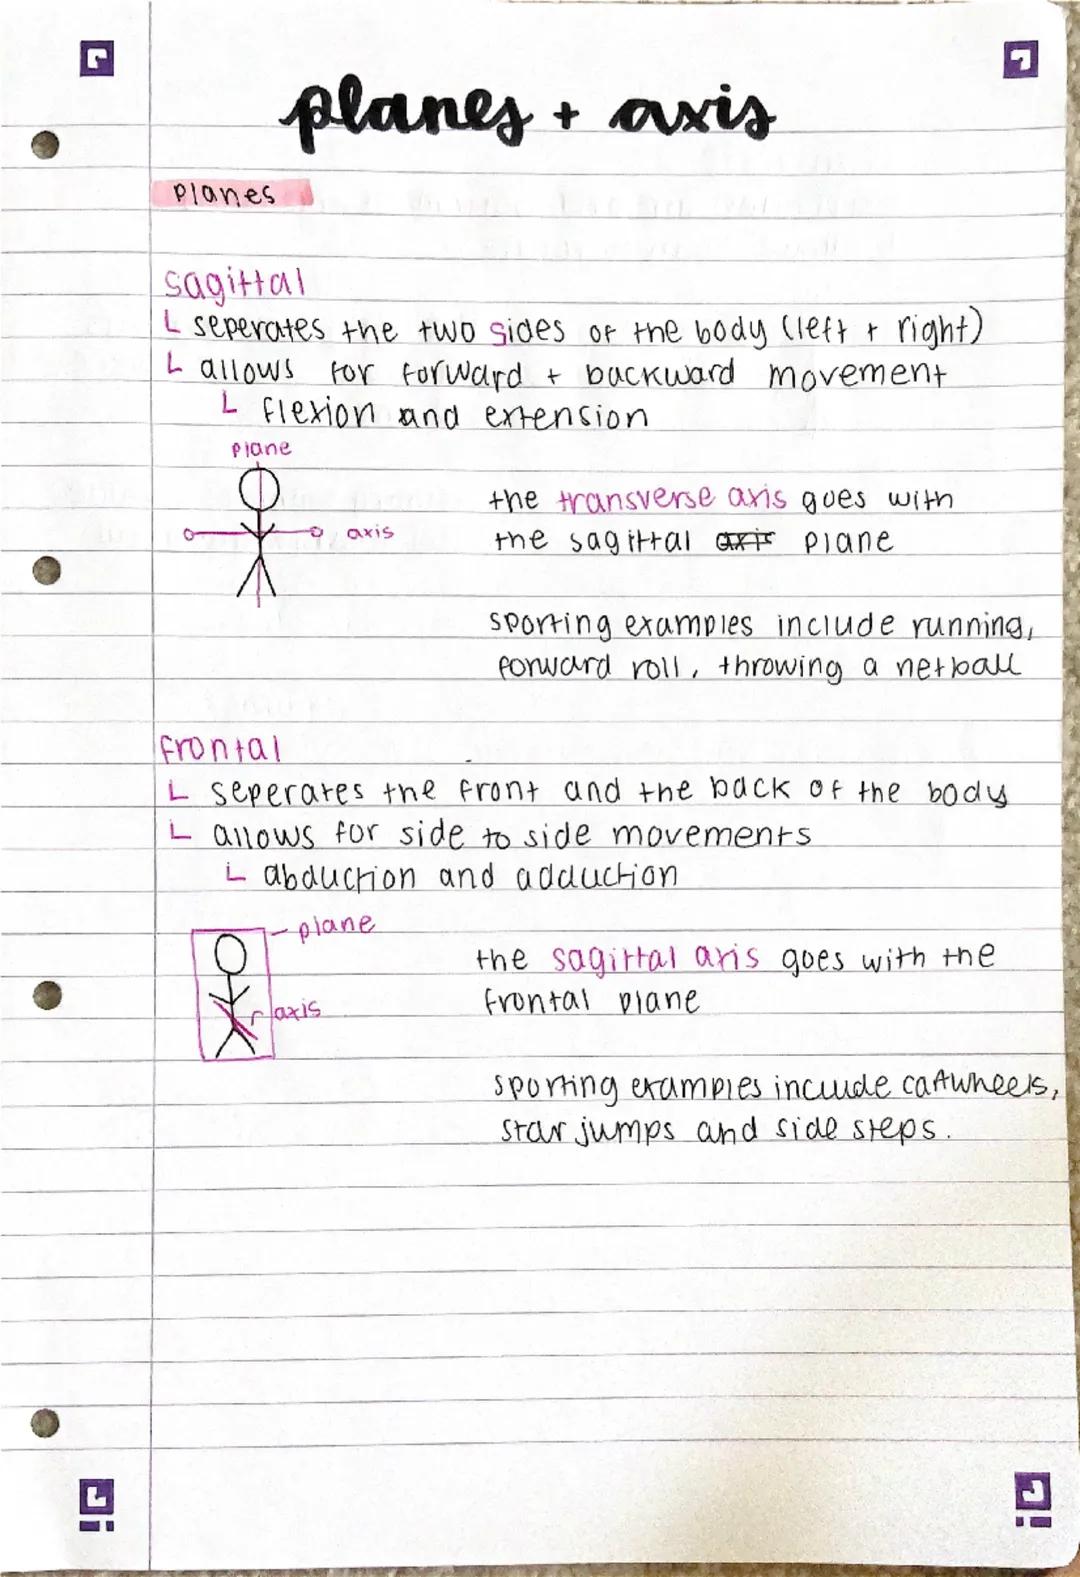 planes + axis
Planes
sagittal
L seperates the two sides of the body (left + right)
L allows for forward + backward movement
L flexion and extension
plane
the transverse axis goes with
axis
the sagittal axis plane
sporting examples include running,
forward roll, throwing a netball
frontal
L seperates the front and the back of the body
L allows for side to side movements
L abduction and adduction
plane
the sagittal axis goes with the
frontal plane
axis
sporting examples include cartwheels,
star jumps and side steps.